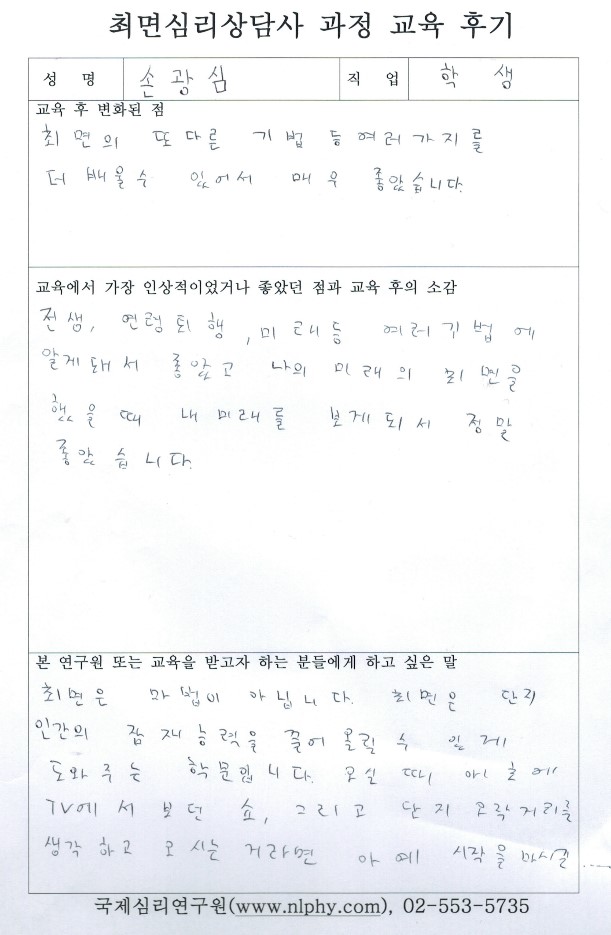 최면심리상담사 과정 교육 후기
성 명 손광심 직 업 학 생
교육 후 변화된 점
최면의 또 다른 기법 등 여러가지를
더 배울수 있어서 매우 좋았습니다.
교육에서 가장 인상적이었거나 좋았던 점과 교육 후의 소감
전생, 연령퇴행, 미래등 여러 기법에
알게돼서 좋았고 나의 미래의 최면을
했을 때 내 미래를 보게되서 정말
좋았습니다.
본 연구원 또는 교육을 받고자 하는 분들에게 하고 싶은 말
최면은 마법이 아닙니다. 최면은 단지
인간의 잠재능력을 끌어 올릴 수 있게
도와주는 학문입니다. 오실 때 아예
TV에서 보던 쇼, 그리고 단지 오락거리를
생각하고 오시는거라면 아예 시작을 마시길....
국제심리연구원(www.nlphy.com), 02-553-5735